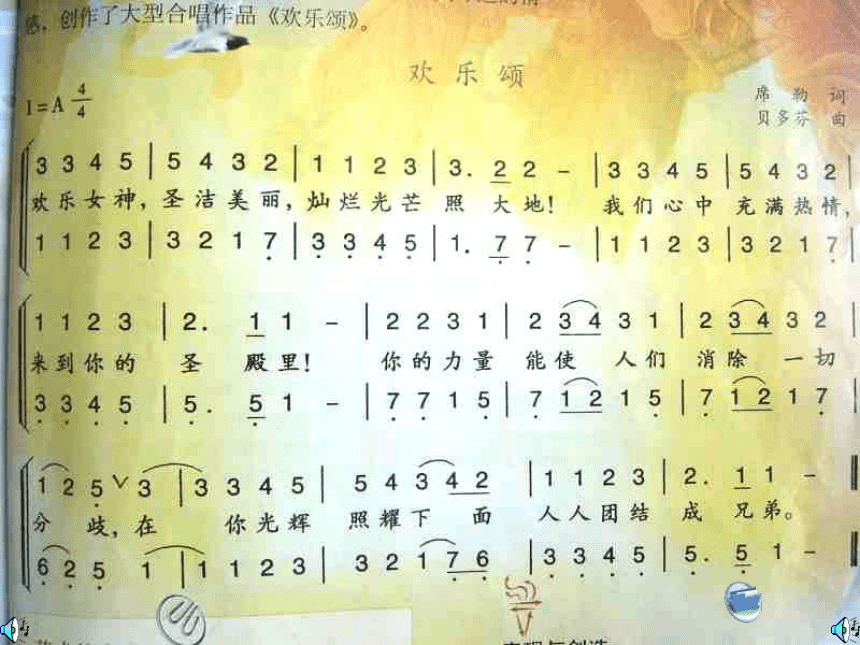 感，创作了大型合唱作品《欢乐颂》。
欢 乐 颂
1=A 4/4
席 勒 词
贝多芬 曲
3 3 4 5 | 5 4 3 2 | 1 1 2 3 | 3. 2 2 - | 3 3 4 5 | 5 4 3 2 |
欢乐女神，圣洁美丽，灿烂光芒 照 大地！ 我们心中 充满热情，
1 1 2 3 | 3 2 1 7 | 3 3 4 5 | 1. 7 7 - | 1 1 2 3 | 3 2 1 7 |
1 1 2 3 | 2. 1 1 - | 2 2 3 1 | 2 3 4 3 1 | 2 3 4 3 2 |
来到你的 圣 殿里！ 你的力量 能使 人们 消除 一切
3 3 4 5 | 5. 5 1 - | 7 7 1 5 | 7 1 2 1 5 | 7 1 2 1 7 |
1 2 5 V 3 | 3 3 4 5 | 5 4 3 4 2 | 1 1 2 3 | 2. 1 1 -
分 歧，在 你光辉 照耀下 面 人人团结 成 兄弟。
6 2 5 1 | 1 1 2 3 | 3 2 1 7 6 | 3 3 4 5 | 5. 5 1 -